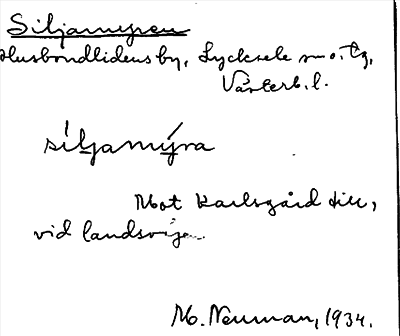 Siljamyren
Husbondlidens by, Lycksele sn o. tg,
Västerb. l.
síljamýra
Mot Karlsgård till,
vid landsvägen
M. Neuman, 1934.